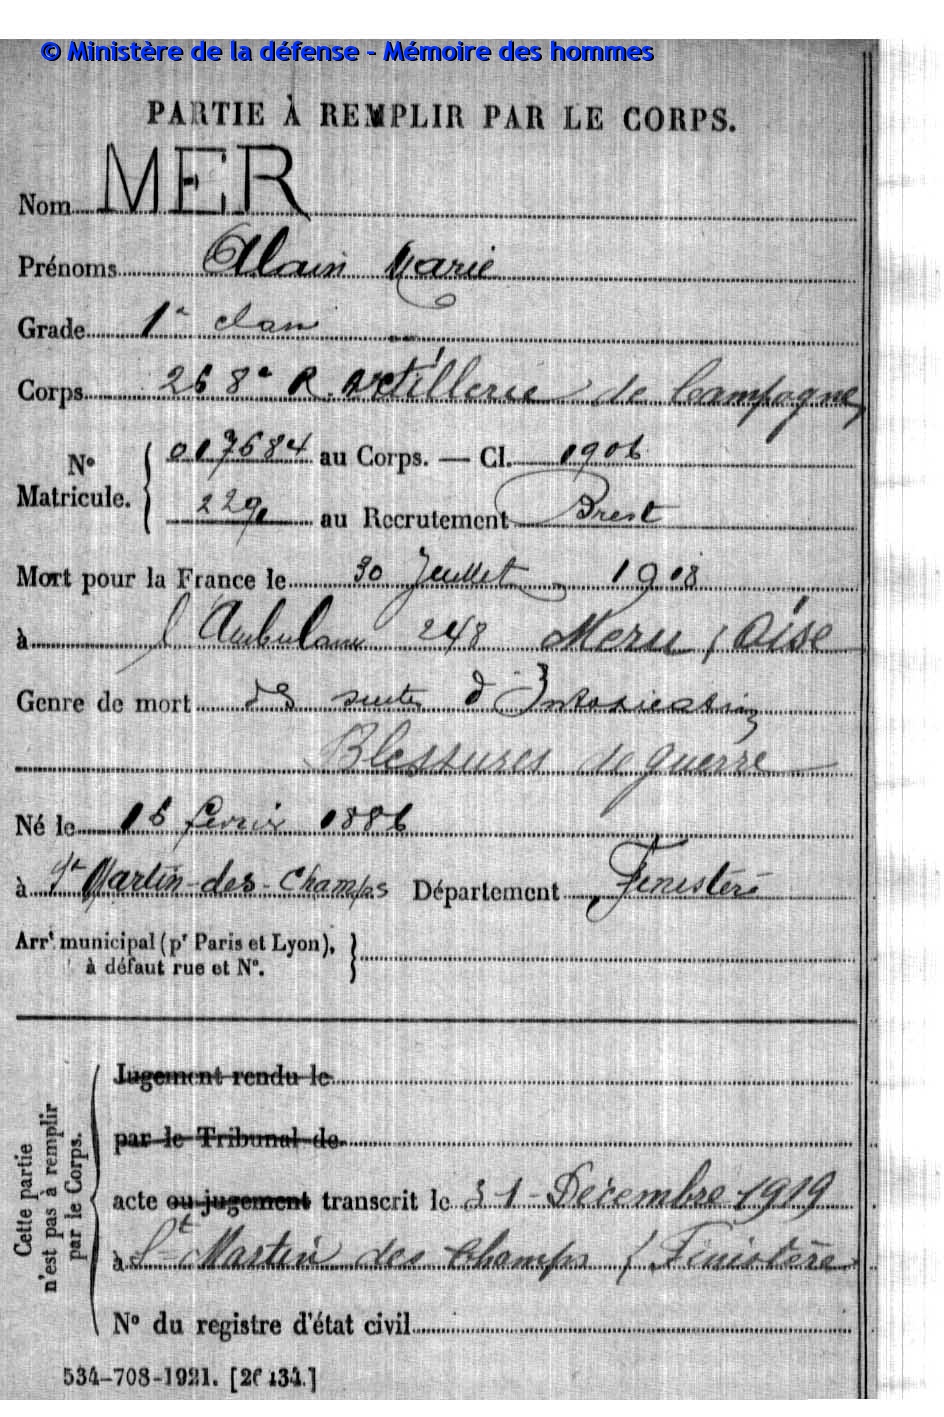 © Ministère de la défense - Mémoire des hommes
PARTIE À REMPLIR PAR LE CORPS.
Nom MER
Prénoms Alain Marie
Grade 1e class
Corps 268e R. Artillerie de Campagne
N° Matricule. { 017684 au Corps. — Cl. 1906
229 au Recrutement Brest
Mort pour la France le 30 Juillet 1918
à l'Ambulance 248 Meru (Oise
Genre de mort des suites d'Intoxication
Blessures de guerre
Né le 16 février 1886
à St Martin-des-Champs Département Finistère
Arrt municipal (pr Paris et Lyon),
à défaut rue et N°. }
Cette partie n'est pas à remplir par le Corps.
Jugement rendu le
par le Tribunal de
acte ou jugement transcrit le 31 Décembre 1919
à St Martin des Champs (Finistère
N° du registre d'état civil
534-708-1921. [26434.]